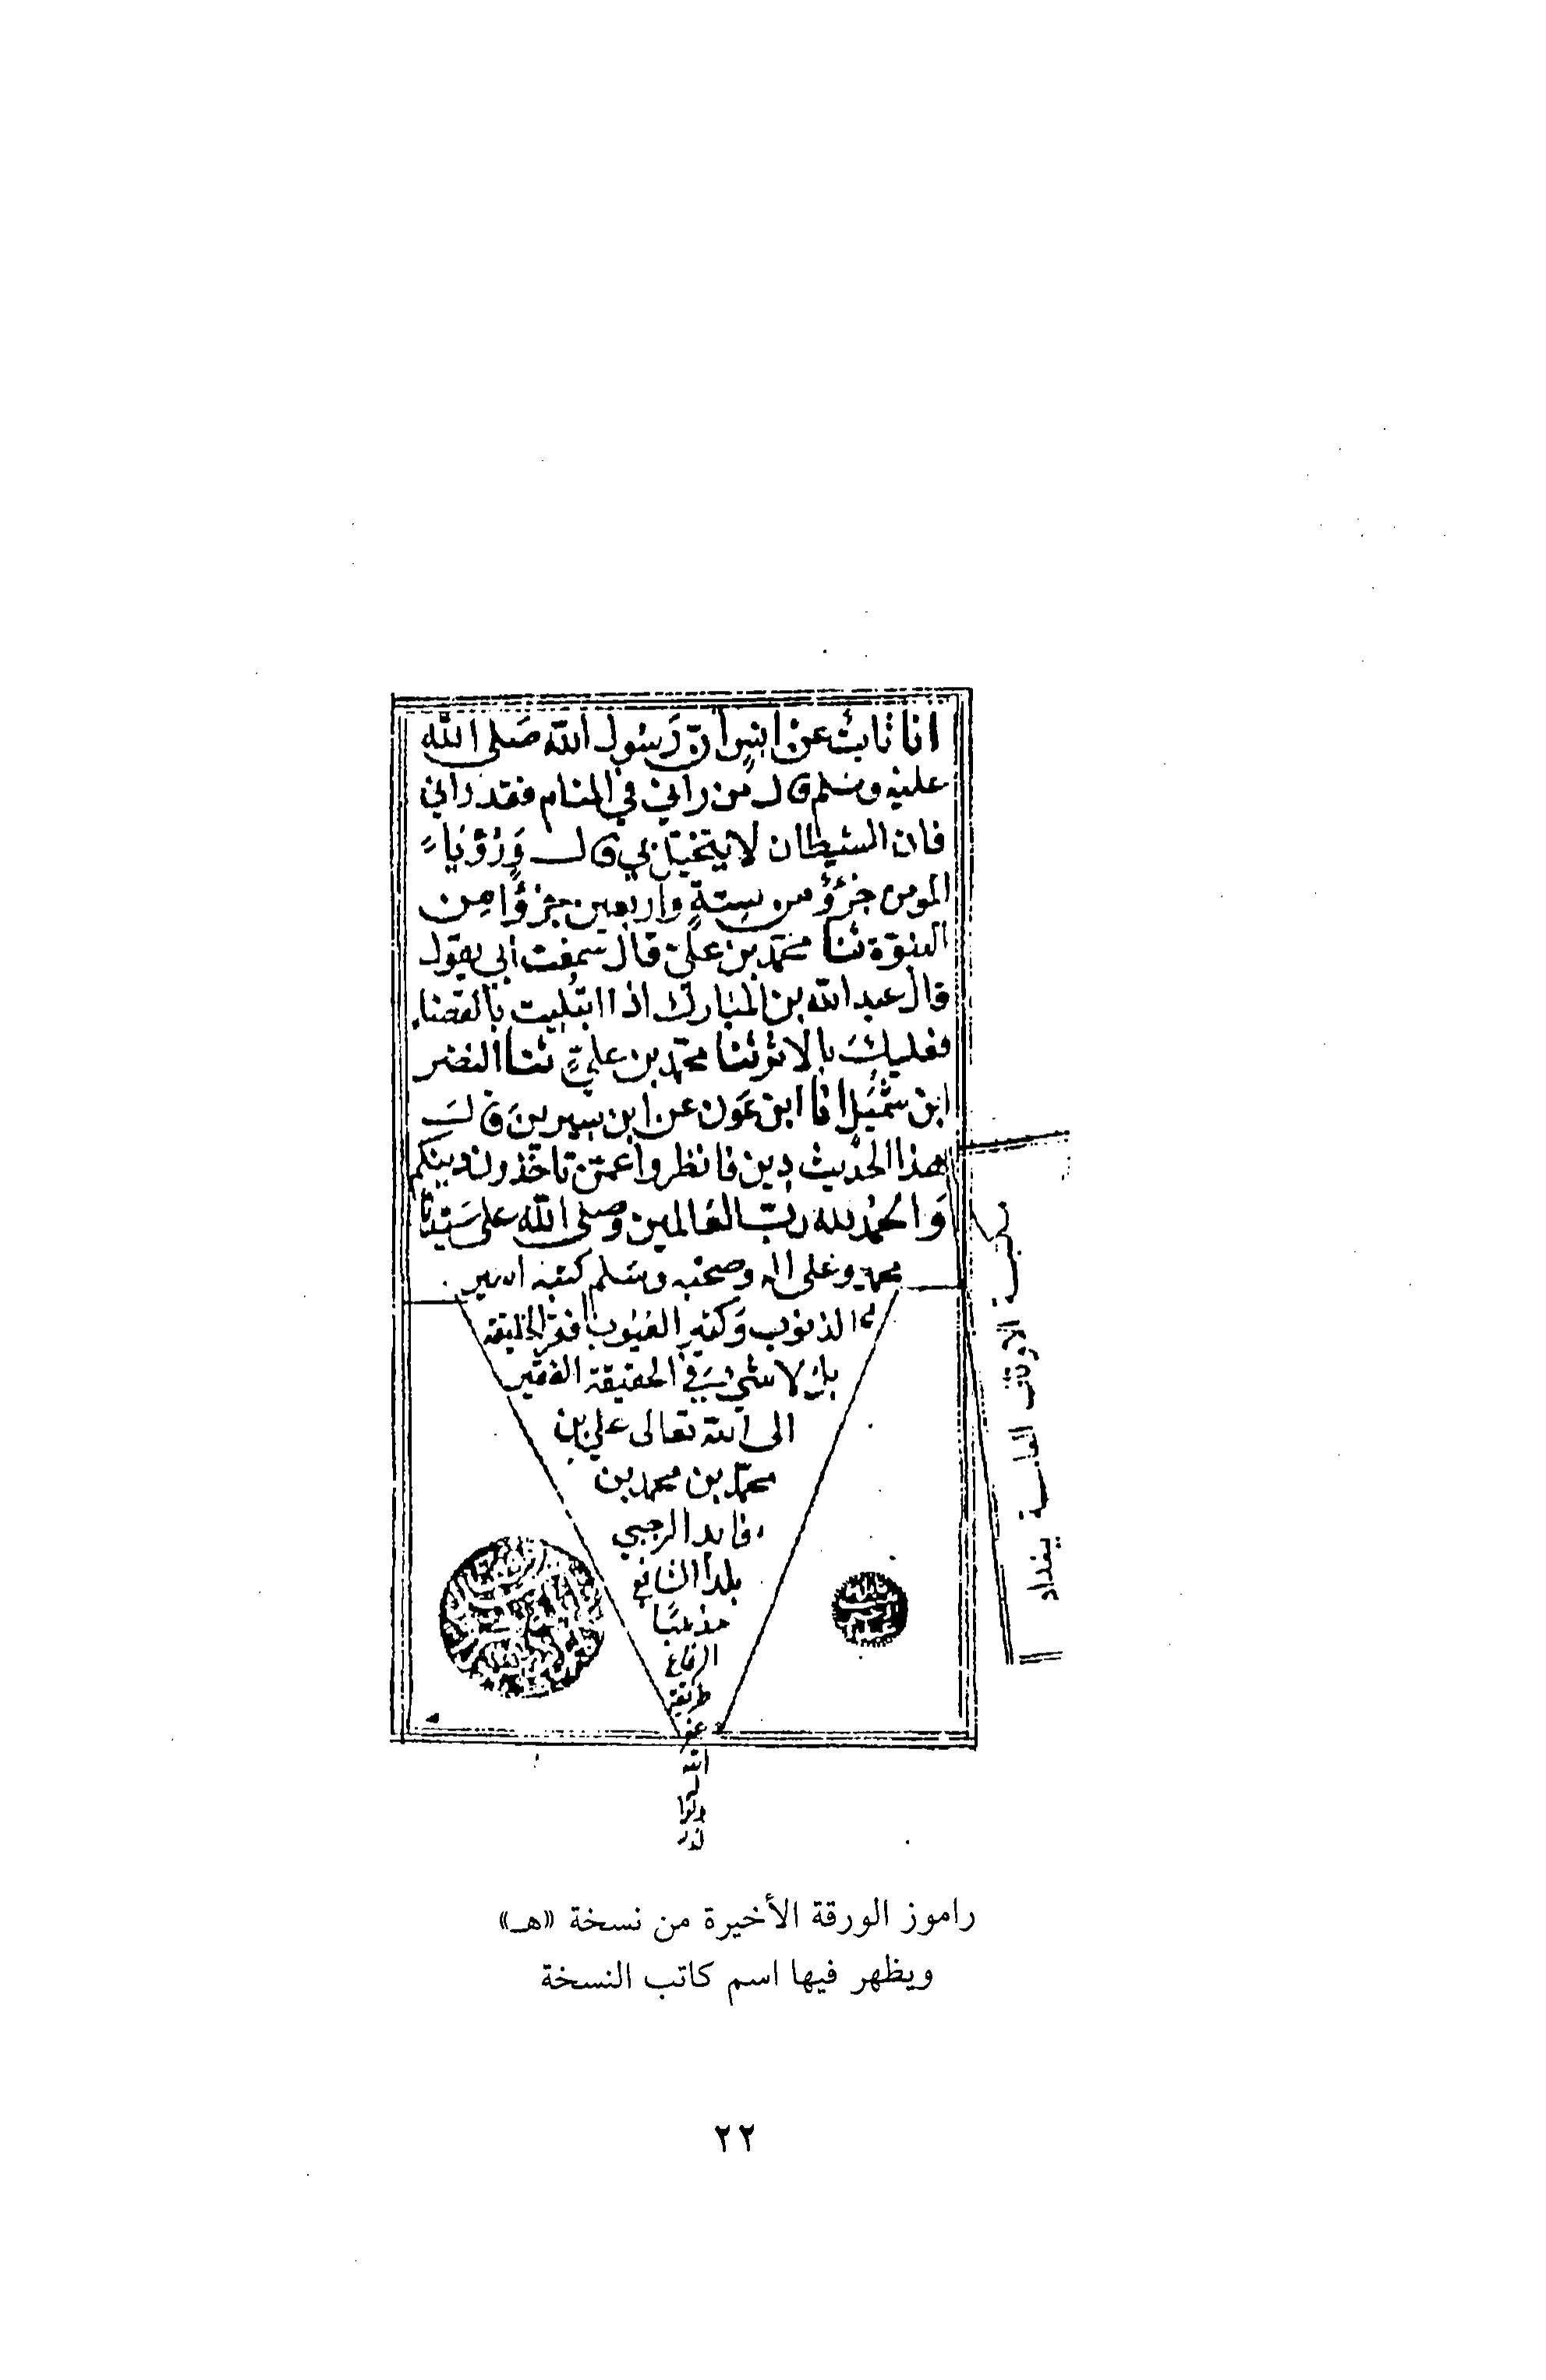 انا ثابت عن انس ان رسول الله صلى الله
عليه وسلم قال من راني في المنام فقد راني
فان الشيطان لا يتخيل بي قال ورؤياء
المومن جزؤ من ستة واربعين جزؤا من
النبوة ثنا محمد بن علي قال سمعت ابي يقول
قال عبد الله بن المبارك اذا ابتليت بالقضاء
فعليك بالاثر ثنا محمد بن علي ثنا النضر
ابن شميل انا ابن عون عن ابن سيرين قال
هذا الحديث دين فانظروا عمن تاخذون دينكم
والحمد لله رب العالمين وصلى الله على سيدنا
محمد وعلى اله وصحبه وسلم كتبه اسير
الذنوب وكثير العيوب افقر الخليقة
بل لا شي في الحقيقة الفقير
الى الله تعالى علي بن
محمد بن محمد بن
فايد الرجبي
بلدا الشافعي
مذهبا
الرفاعي
طريقة
الله
مكتبة الاوقاف العامة ببغداد
راموز الورقة الأخيرة من نسخة «هـ»
ويظهر فيها اسم كاتب النسخة
٢٢